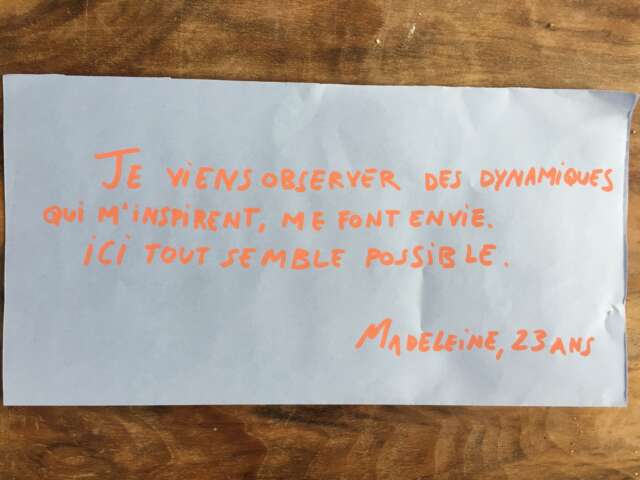 JE VIENS OBSERVER DES DYNAMIQUES
QUI M'INSPIRENT, ME FONT ENVIE.
ICI TOUT SEMBLE POSSIBLE.
MADELEINE, 23 ANS